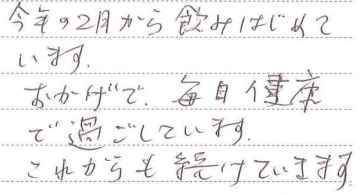 今年の2月から飲みはじめて
います.
おかげで、毎日健康
で過ごしています.
これからも続けていきます